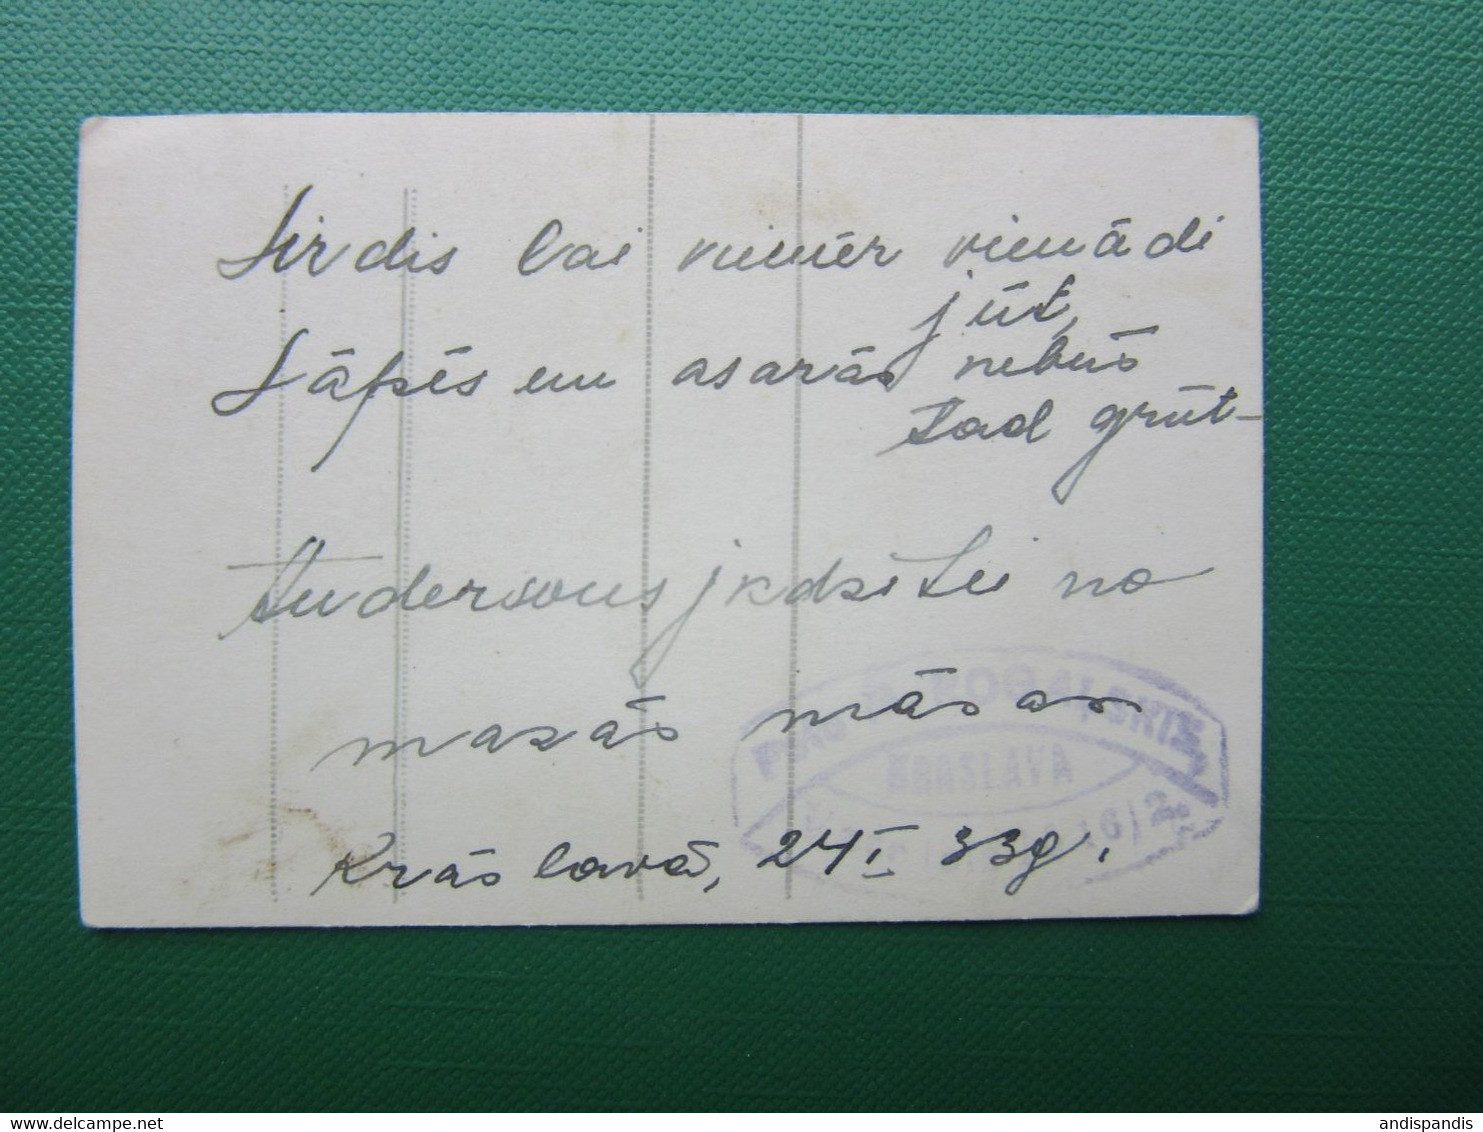 Sirdis lai vienmēr vienādi
jūt,
Sāpēs un asarās nebūs
tad grūt-
Andersons jkdzītei no
mazās māsas
Krāslavā, 24 I 33g.
KRASLAVA
andispandis